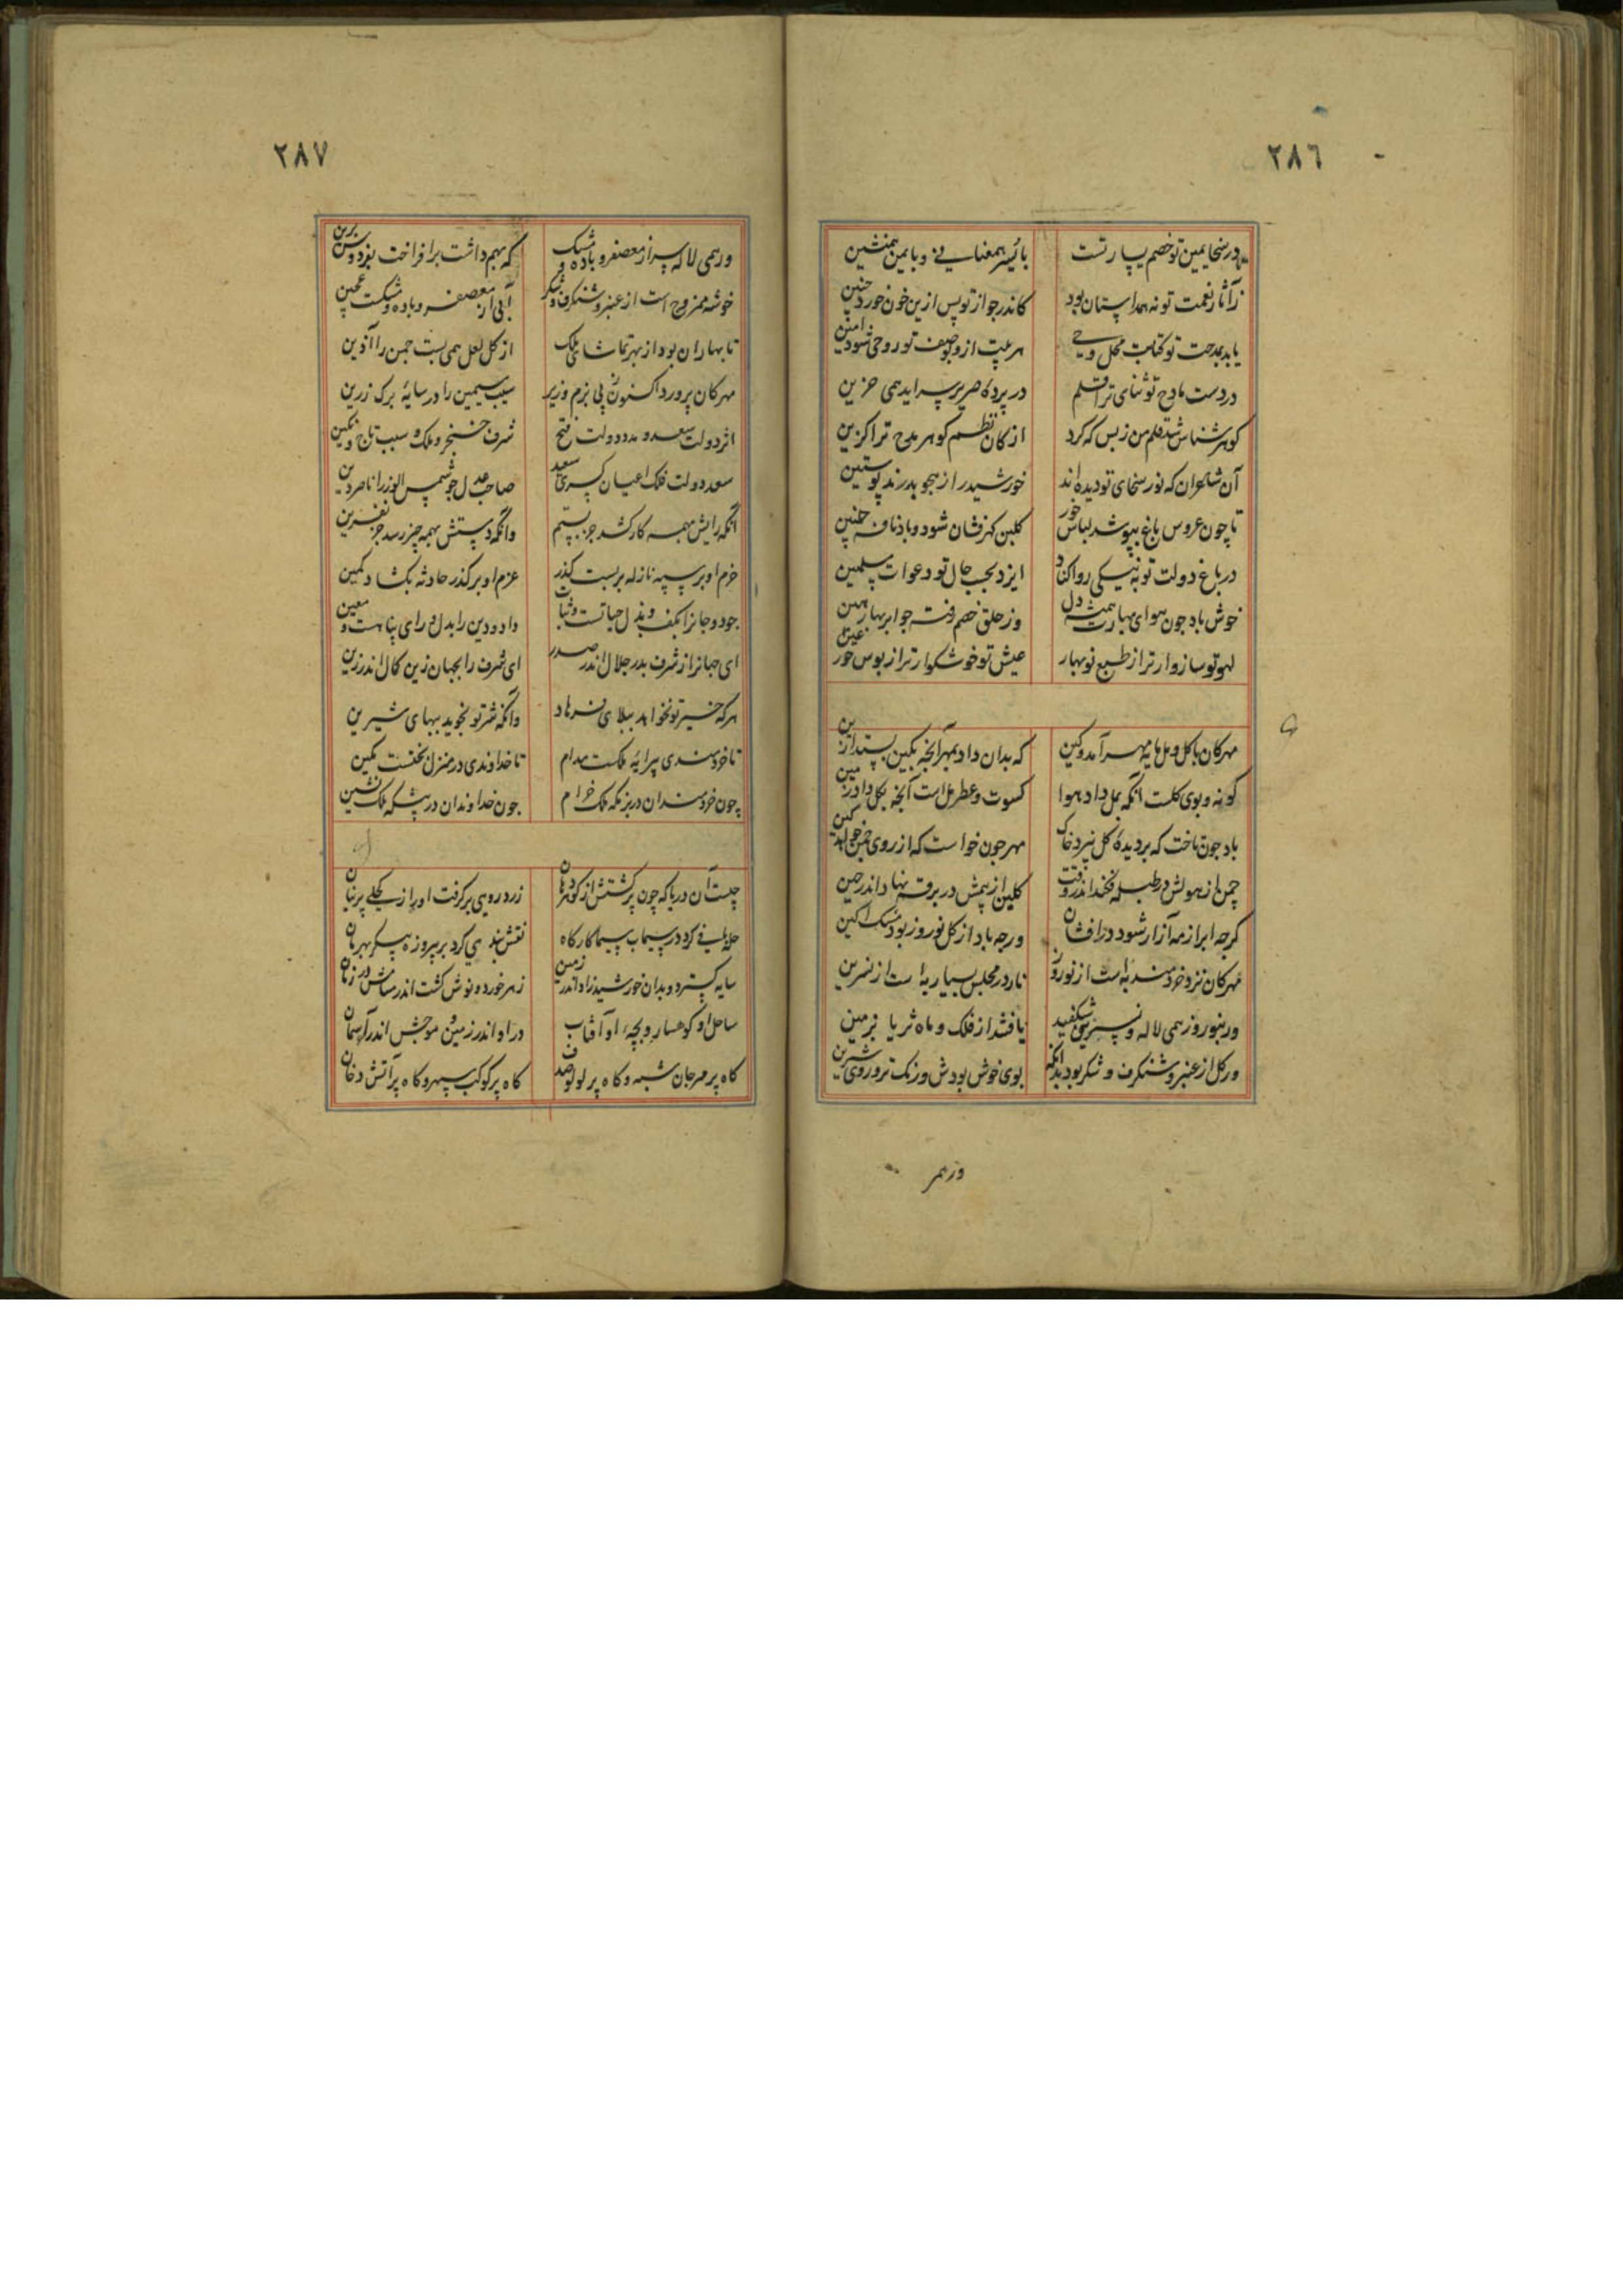 ٢٨٦
در سخا یمین تو خصم یسار تست
با یسر همعنانی و با یمن همنشین
ز آثار نعمت تو نه همداستان بود
کاندر جوار تو پس ازین خون خورد جنین
یابد بمدحت تو کتابت محل وحی
هر بیت از وصف تو روحی شود امین
در دست مادح تو ثنای ترا قلم
در پرده صریر سراید همی حزین
کوهر شناس شد قلم من ز بس که کرد
از کان نظم کوهر مدح ترا کزین
آن شاعران که نور سخای تو دیده اند
خورشید را ز هجو بدرند پوستین
تا چون عروس باغ بپوشد لباس خور
کلبن کهرفشان شود و باد نافه چین
در باغ دولت تو به نیکی روا کناد
ایزد بحسب حال تو دعوات مسلمین
خوش باد چون هوای بهارت همیشه دل
وز حلق خصم رفته چو ابر بهار هین
لهو تو سازوارتر از طبع نوبهار
عیش تو خوشکوارتر از بوس حور عین
مهرکان با کل و مل مایه مهر آمد و کین
که بدان داد بمهر آنچه بکین بستد ازین
کونه و بوی کلست آنکه بمل داد هوا
کسوت و عطر مل است آنچه بکل داد زمین
باد چون تاخت که بر دیده کل نیزد خاک
مهر چون خواست که از روی چمن خواهد کین
چمن از هولش در طبله فکند اندر وقت
کلبن از بیمش در برقه نهاد اندر حین
کرچه ابر از مه آزار شود درافشان
ورچه باد از کل نوروز بود مشک آکین
مهرکان نزد خردمند به است از نوروز
نار در مجلس بسیار به است از نسرین
ور بنوروز همی لاله و نسرین شکفید
یا فتد از فلک و ماه ثریا بزمین
ور کل از عنبر و شنکرف و شکر بود بدانکه
بوی خوش بودش و رنک تر و روی شیرین
ورهمی
٢٨٧
ورهمی لاله سر از معصفر و باده و مشک
که بهم داشت برافراخت بفردوس برین
خوشه ممزوج است از عنبر و شنکرف و شکر
آبی از معصفر و باده و مشکست عجین
تا بهاران بود از بهر تماشای ملک
از کل لعل همی بست چمن را آذین
مهرکان پرورد اکنون ز پی بزم وزیر
سیب سیمین را در سایه برک زرین
اثر دولت سعد و مدد دولت فتح
شرف خنجر و ملک و سبب تاج و نکین
سعد دولت فلک اعیان کسری سعد
صاحب عدل جو شمس الوزرا ناصر دین
آنکه رایش بهمه کار کشد جز بستم
وانکه دستش بهمه چیز رسد جز نفرین
حزم او بر سپه نازله بربست کذر
عزم او بر کذر حادثه بکشاد کمین
جود و جانرا بکف و بذل حیاتست و ثبات
داد و دین را بدل و رای پناهست و معین
ای جهانرا ز شرف بدر جلال اندر صدر
ای شرف را بجهان زین کمال اندر زین
هرکه خیر تو نخواهد ببلای فرهاد
وانکه شر تو نجوید ببهای شیرین
تا خردمندی پیرایه ملکست مدام
تا خداوندی در منزل بختست مکین
چون خردمندان در بزمکه ملک خرام
چون خداوندان در پیشکه ملک نشین
چیست آن دریا که چون پر کشتش از کوهر دهان
زرد رویی برکرفت او را ز کحلی پرنیان
حله بافی کرد در سیماب سیما کارکاه
نقش بندی کرد بر پیروزه پیکر بهرمان
سایه کسترد و بدان خورشید زاد اندر زمین
زهر خورد و نوش کشت اندر مسامش در زمان
ساحل او کوهسار و بچه او آفتاب
در او اندر زمین و موجش اندر آسمان
کاه پر مرجان شبه و کاه پر لولو صدف
کاه پر کوکب سپهر و کاه پر آتش دخان